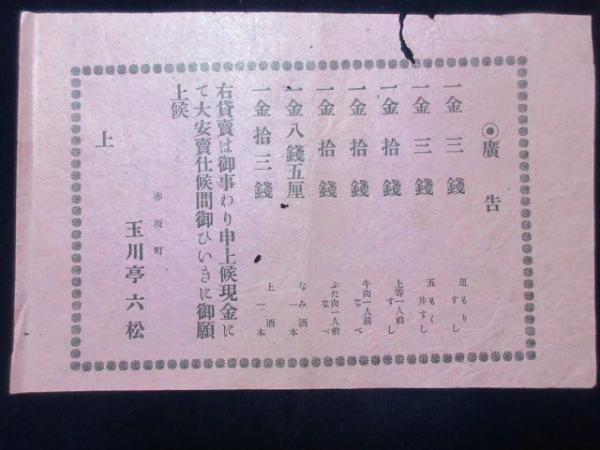 ◉廣告
一金三錢 皿もりすし
一金三錢 五もく丼すし
一金拾錢 上等一人前すし
一金拾錢 牛肉一人前なべ
一金拾錢 ぶた肉一人前なべ
一金八錢五厘 なみ酒一本
一金拾三錢 上酒一本
右貸賣は御事わり申上候現金に
て大安賣仕候間御ひいきに御願
上候
赤坂町
玉川亭六松
上